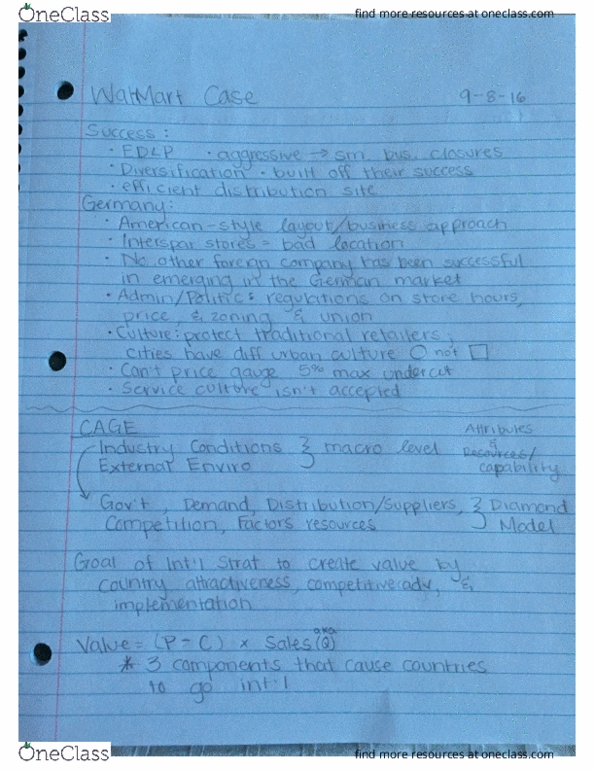 OneClass
find more resources at oneclass.com
WalMart Case 9-8-16
Success:
· EDLP · aggressive → sm. bus. closures
· Diversification · built off their success
· efficient distribution site
Germany:
· American-style layout/business approach
· Interspar stores = bad location
· No other foreign company has been successful
in emerging in the German market
· Admin/Politic: regulations on store hours,
price, & zoning & union
· Culture: protect traditional retailers;
cities have diff urban culture ○ not □
· Can't price gauge 5% max undercut
· Service culture isn't accepted
CAGE
Industry Conditions } macro level
External Enviro
Attributes
&
Resources/
capability
Gov't, Demand, Distribution/Suppliers, } Diamond
Competition, Factors resources Model
Goal of Int'l Strat to create value by
country attractiveness, competitive adv, &
implementation
Value = (P - C) × Sales (Q)
aka
* 3 components that cause countries
to go int'l
OneClass
find more resources at oneclass.com